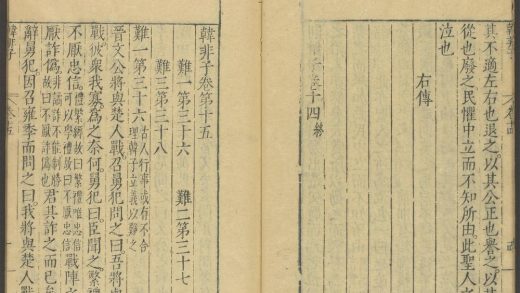 其不適左右也退之以其公正也譽之以其
從也廢之民懼中立而不知所由此聖人
泣也
右傳
子卷十四 終
韓非子卷第十五
難一第三十六 難二第三十七
難三第三十八
難一第三十六 古人行事或有不合
理韓子立義以難之
晉文公將與楚人戰召舅犯問之曰吾將與
戰彼衆我寡爲之奈何舅犯曰臣聞之繁禮
不厭忠信 禮繁縟故曰繁禮唯忠信
可以學禮故曰不厭忠信 戰陣之
厭詐僞 非譎詐不能制勝
故曰不厭詐僞也 君其詐之而已矣
辭舅犯因召雍季而問之曰我將與楚人戰
韓非子